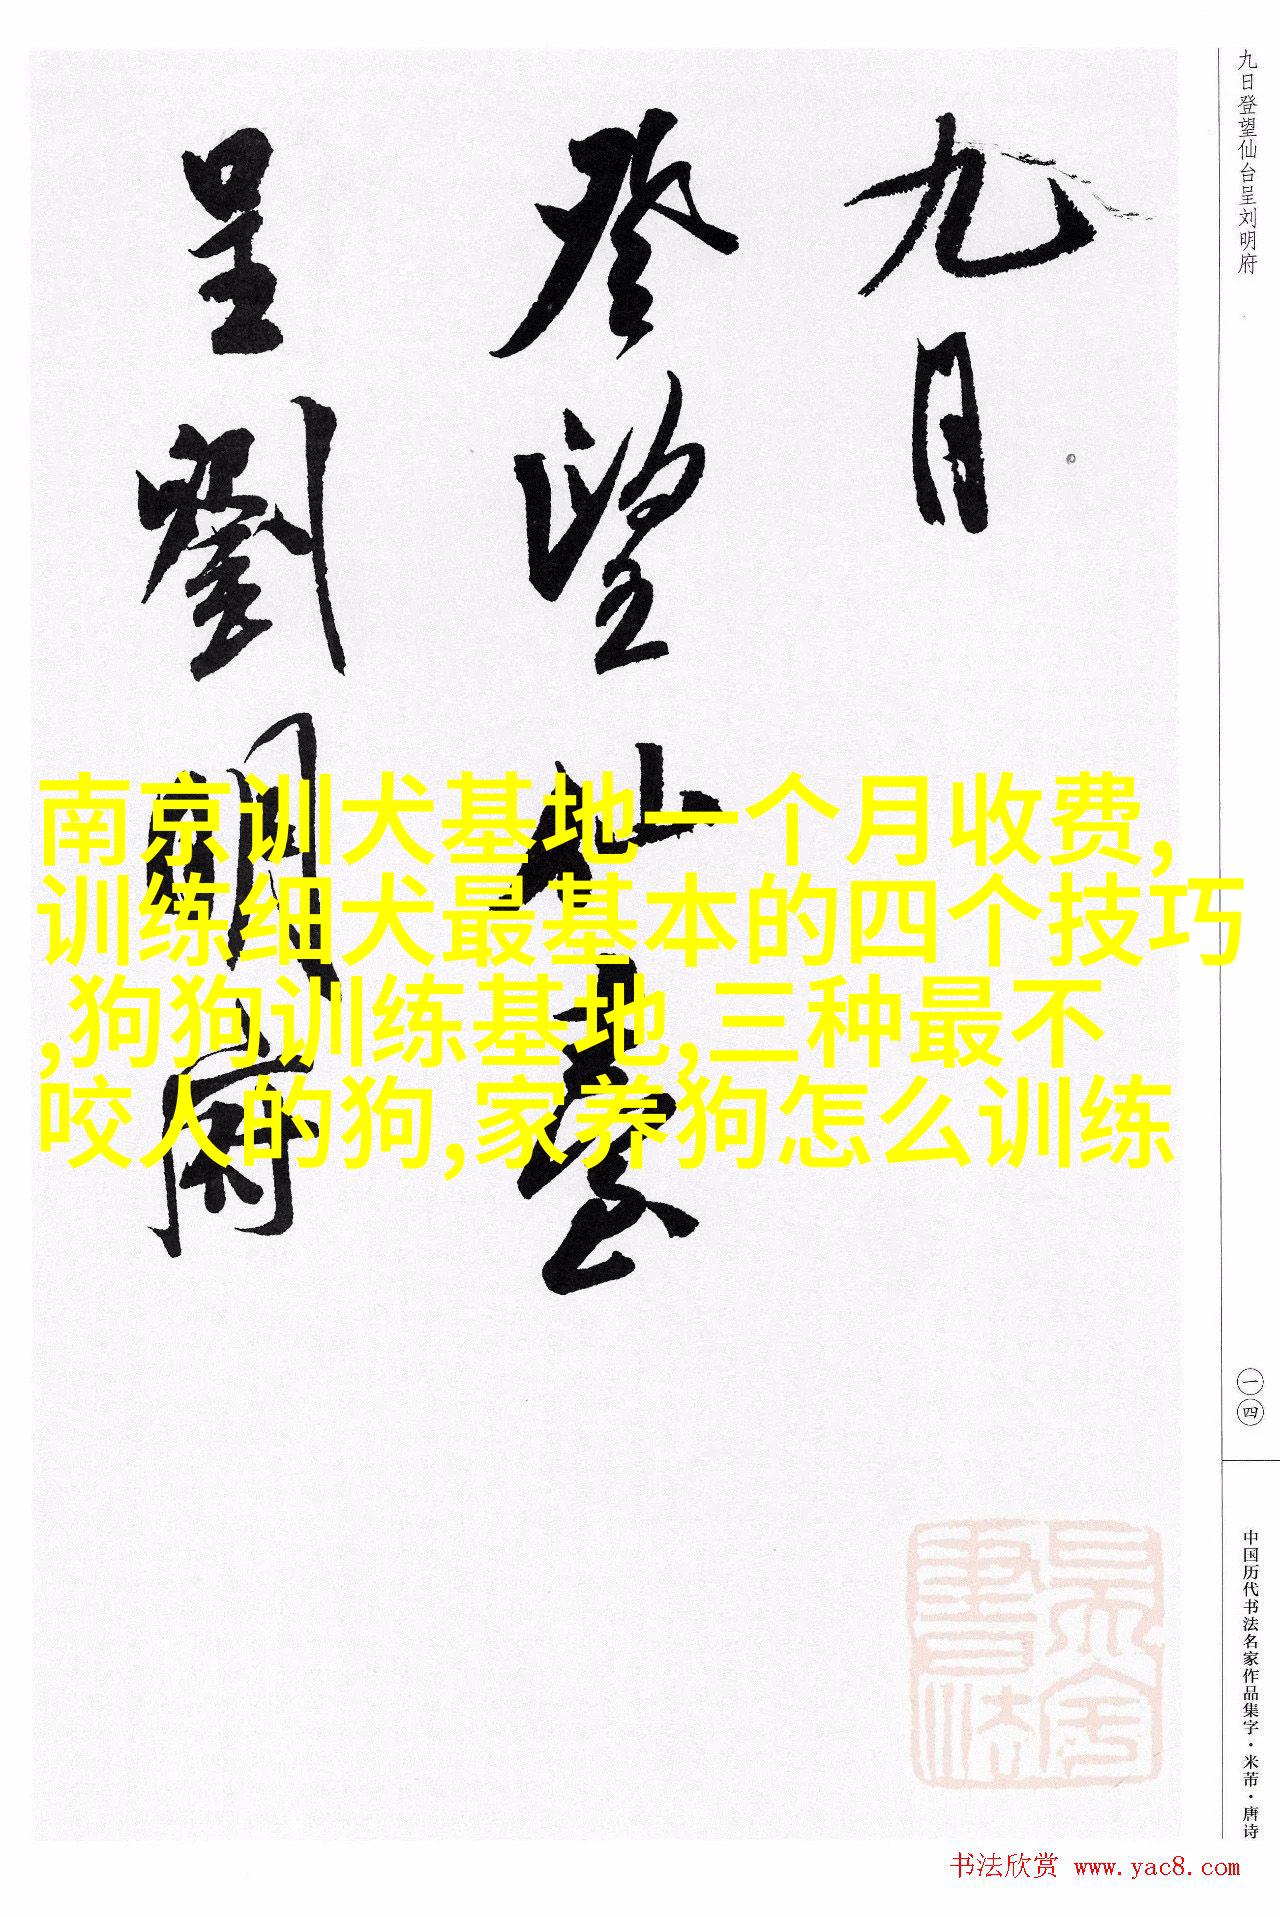 九日
登望仙臺
呈劉明府
九日登望仙台呈刘明府
南京训犬基地一个月收费,
训练细犬最基本的四个技巧
,狗狗训练基地,三种最不
咬人的狗,家养狗怎么训练
一四
中国历代书法名家作品集字·米芾·唐诗
书法欣赏 www.yac8.com